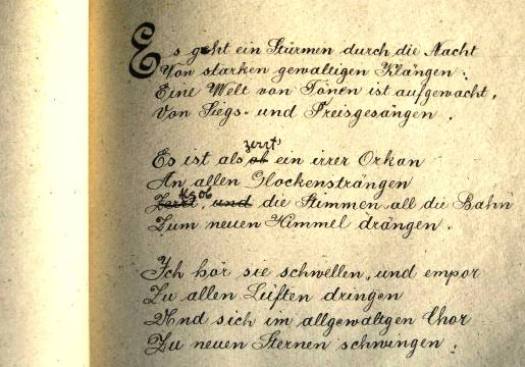 Es geht ein Stürmen durch die Nacht
Von starken gewaltigen Klängen.
Eine Welt von Tönen ist aufgewacht,
Von Siegs- und Preisgesängen.
Es ist als ob zerrt ein irrer Orkan
An allen Glockensträngen
Zerrt, und Als ob die Stimmen all die Bahn
Zum neuen Himmel drängen.
Ich hör sie schwellen, und empor
Zu allen Lüften dringen
Und sich im allgewaltgen Chor
Zu neuen Sternen schwingen.